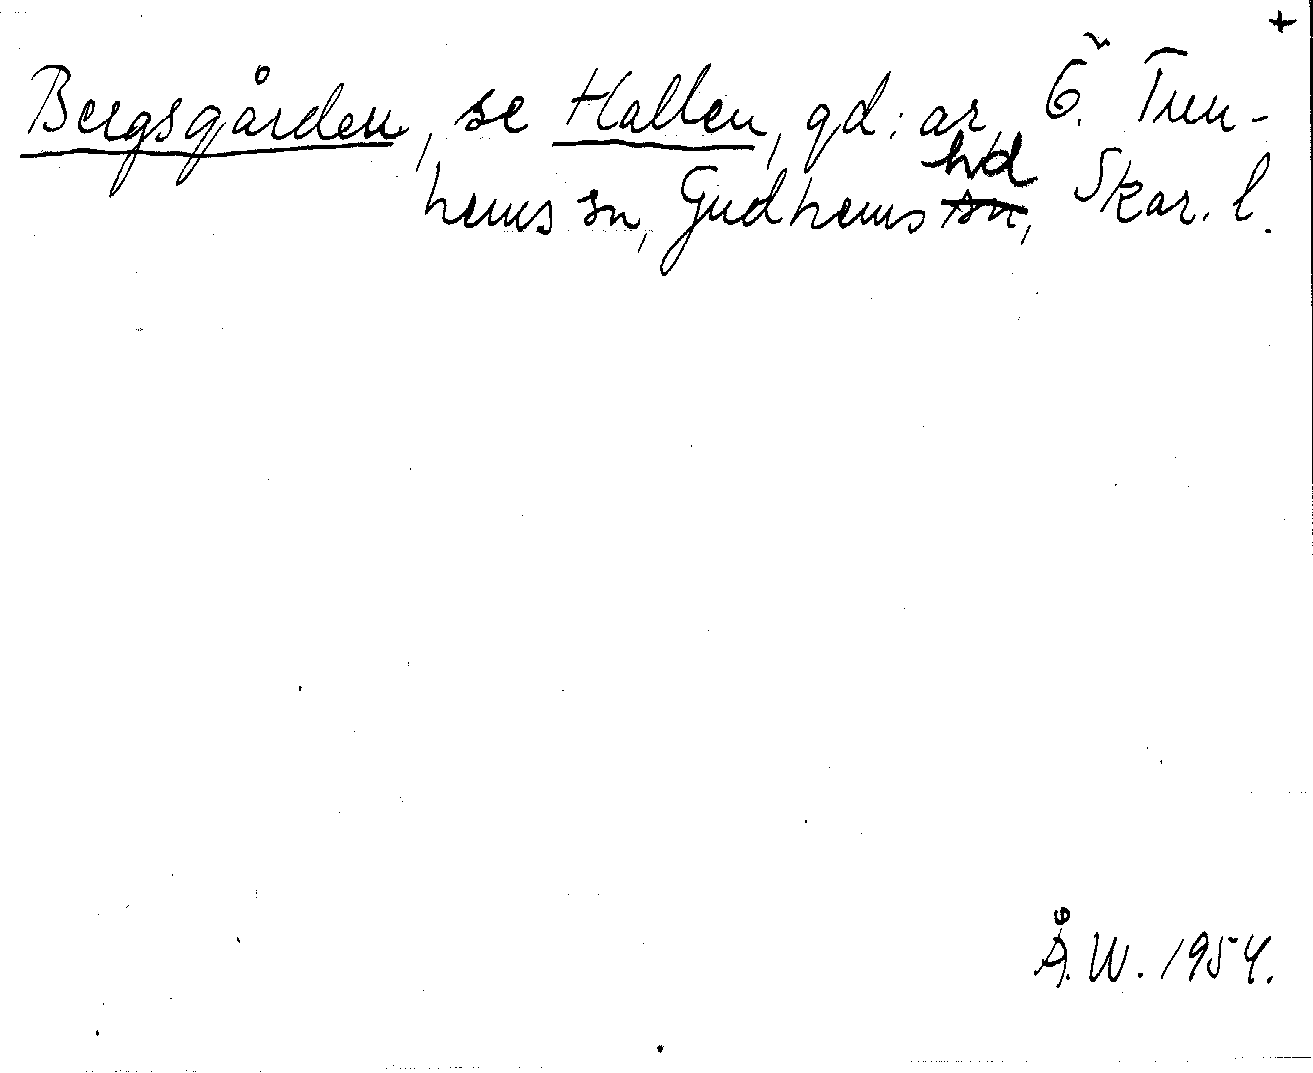 +
Bergsgården, se Hallen, gd:ar, Ö. Tun-
hems sn, Gudhems hd, Skar. l.
Å.W. 1954.